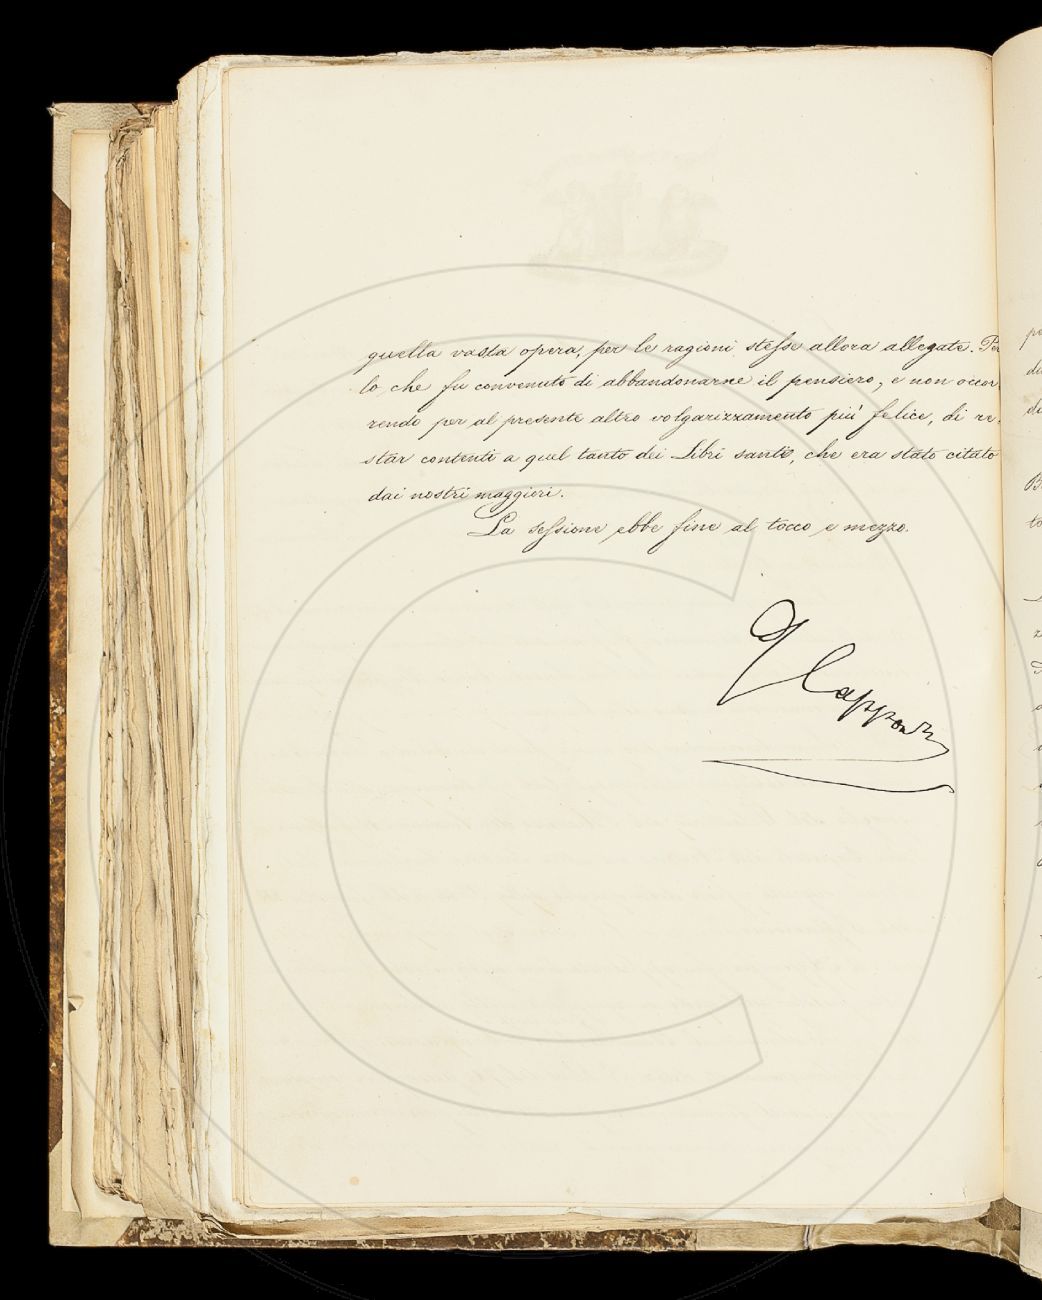 quella vasta opera, per le ragioni stesse allora allegate. Per
lo che fu convenuto di abbandonarne il pensiero, e non occor
rendo per al presente altro volgarizzamento più felice, di re-
star contenti a quel tanto dei Libri santi, che era stato citato
dai nostri maggiori.
La sessione ebbe fine al tocco e mezzo.
G Capponi